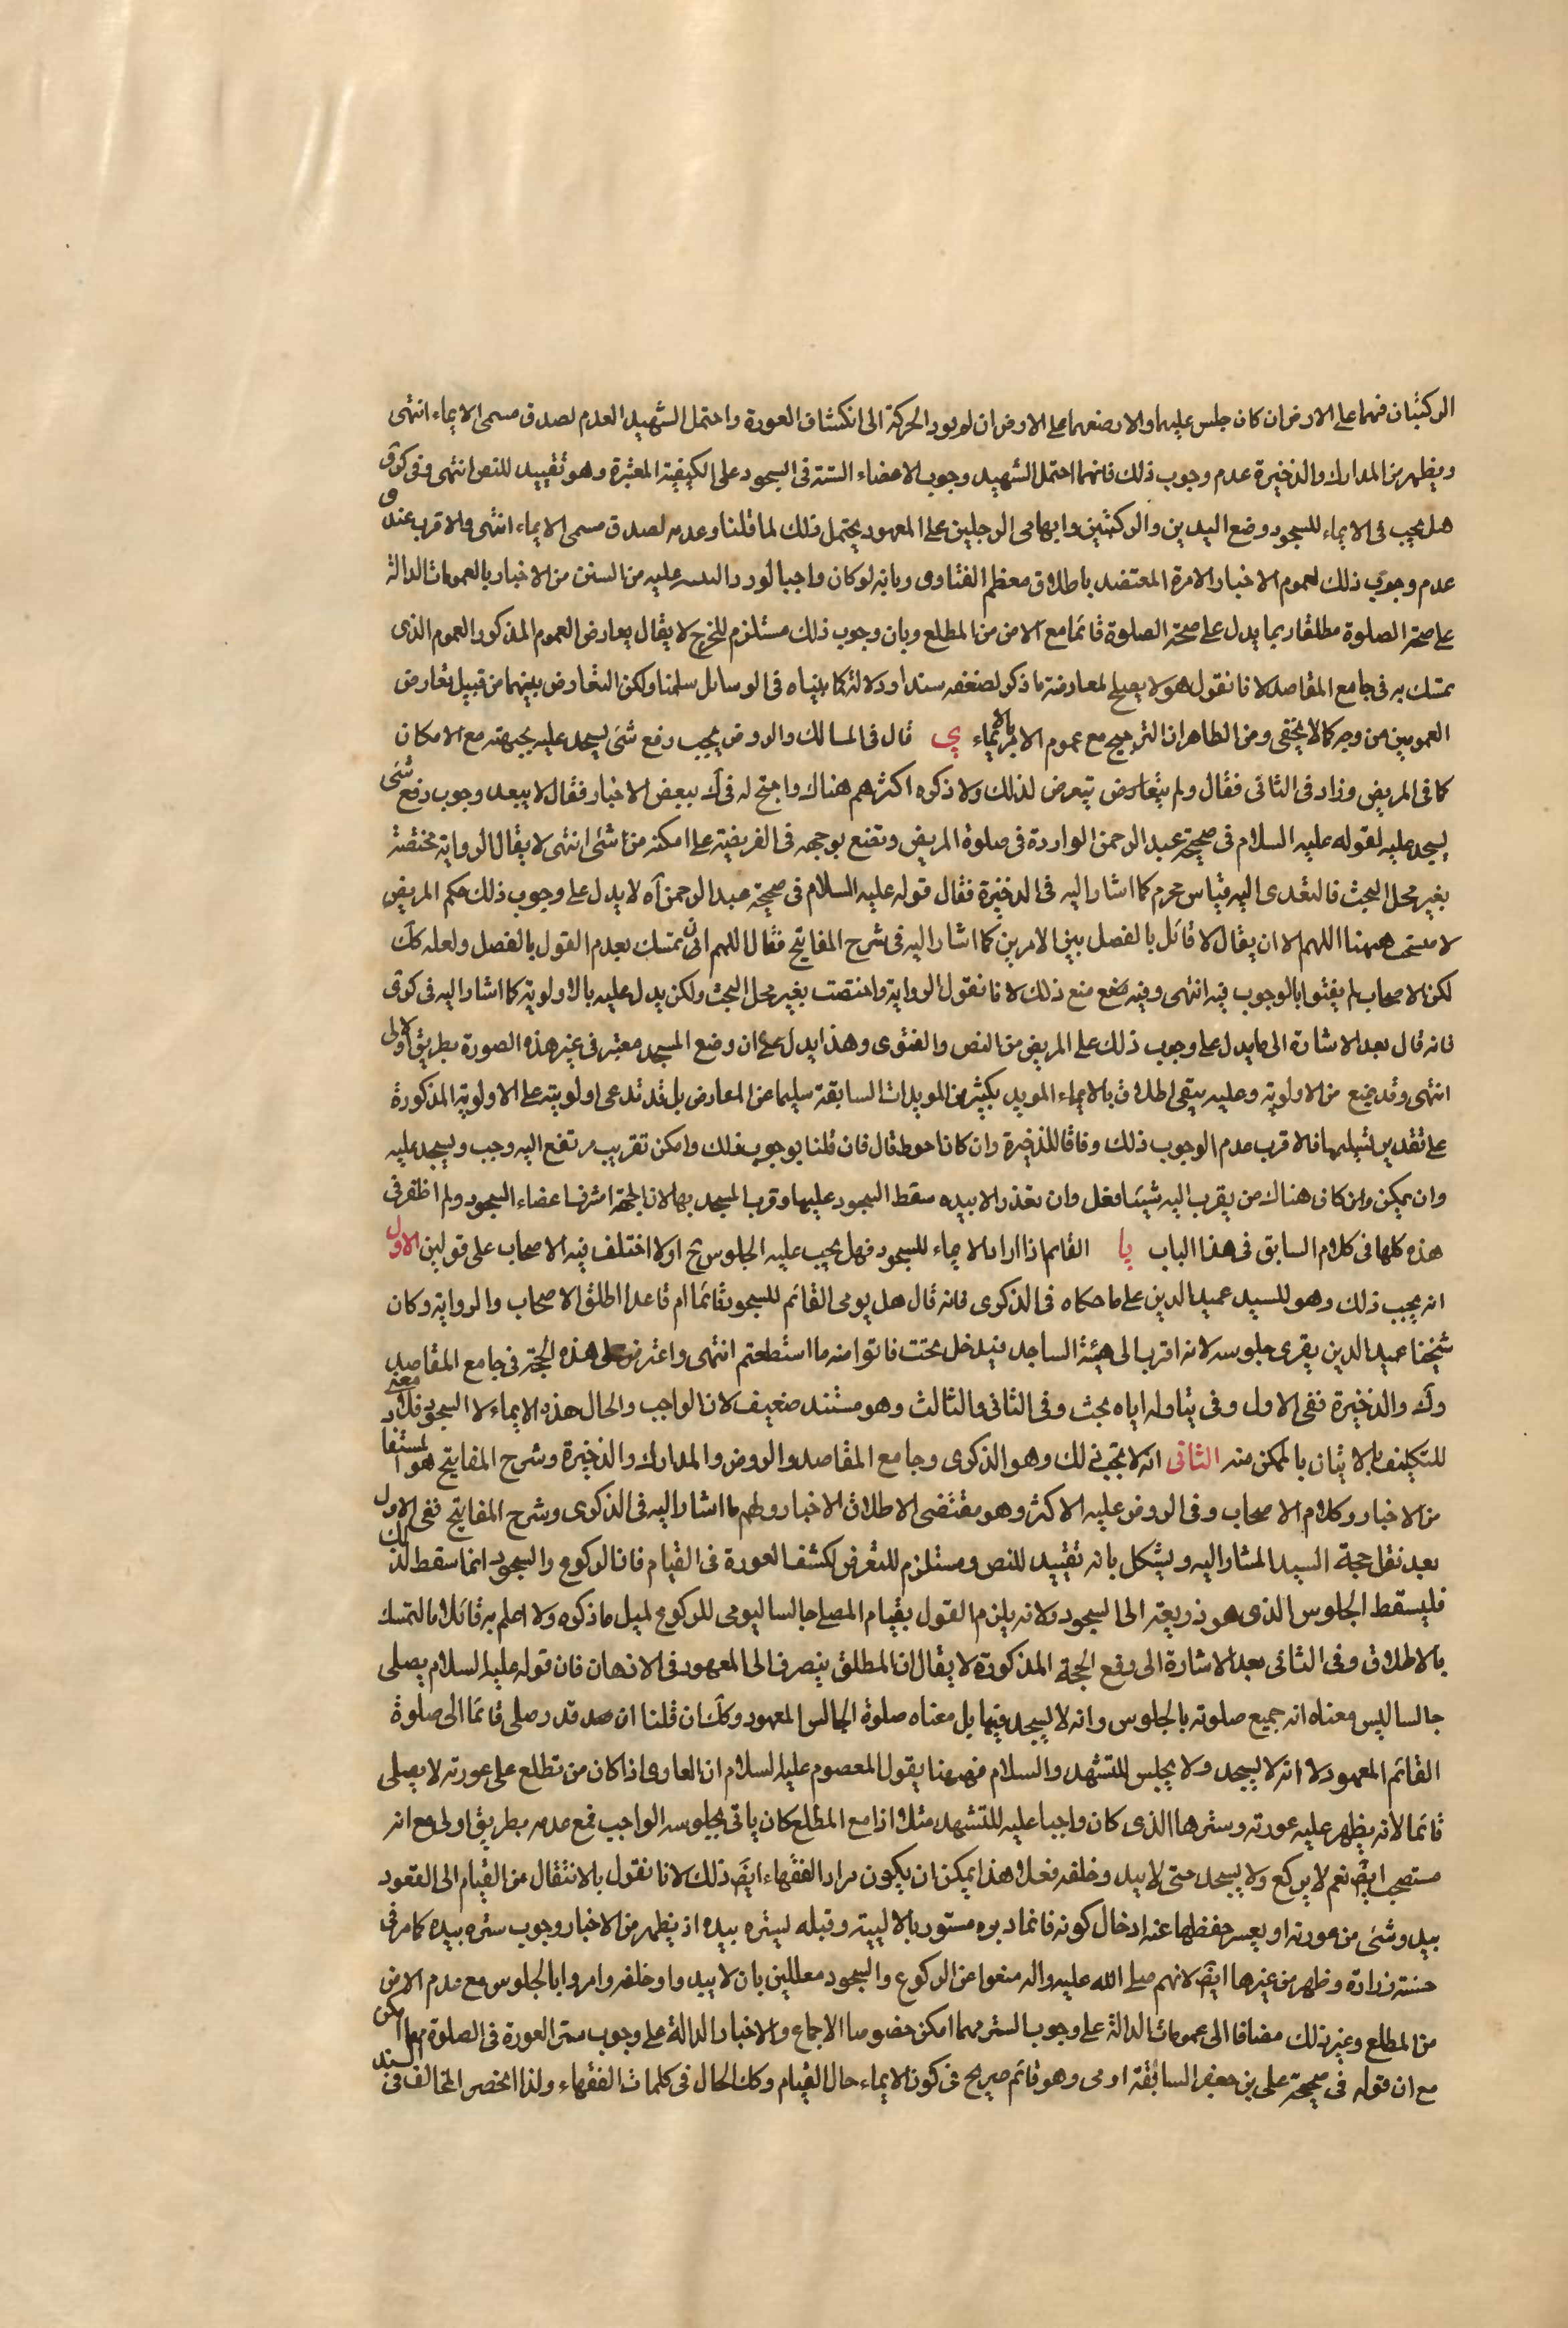 الركبتان فهما على الارض ان كان جلس عليهما والا وضعهما على الارض ان لم يود الحركة الى انكشاف العورة واحتمل الشهيد العدم لصدق مسمى الايماء انتهى
ويظهر من المدارك والذخيرة عدم وجوب ذلك فانهما احتمل الشهيد وجوب الاعضاء الستة فى السجود على الكيفية المعتبرة وهو تقييد للنص انتهى وفى كرى
هل يجب فى الايماء للسجود وضع اليدين والركبتين وابهامى الرجلين على المعهود يحتمل ذلك لما قلنا وعدمه لصدق مسمى الايماء انتهى والاقرب عندى
عدم وجوب ذلك لعموم الاخبار الامرة المعتضد باطلاق معظم الفتاوى وبانه لو كان واجبا لورد التنبيه عليه من السنن من الاخبار بالعمومات الدالة
على صحة الصلوة مطلقا وبما يدل على صحة الصلوة قائما مع الامن من المطلع وبان وجوب ذلك مستلزم للحرج لا يقال يعارض العموم المذكور العموم الذى
تمسك به فى جامع المقاصد لانا نقول هو لا يصلح لمعارضة ما ذكر لضعفه سندا ودلالة كما بيناه فى الوسائل سلمنا ولكن التعارض بينهما من قبيل تعارض
العمومين من وجه كما لا يخفى ومن الظاهر ان الترجيح مع عموم الامر بالايماء ي قال فى المسالك والروض يجب رفع شئ يسجد عليه بجبهته مع الامكان
كما فى المريض وزاد فى الثانى فقال ولم يتعارض يتعرض لذلك ولا ذكره اكثرهم هناك واحتج له فى ك ببعض الاخبار فقال لا يبعد وجوب رفع شئ
يسجد عليه لقوله عليه السلام فى صحيحة عبد الرحمن الواردة فى صلوة المريض وتضع بوجهه فى الفريضة على ما امكنه من شئ انتهى لا يقال الرواية مختصة
بغير محل البحث فالتعدى اليه قياس محرم كما اشار اليه فى الذخيرة فقال قوله عليه السلام فى صحيحة عبد الرحمن آه لا يدل على وجوب ذلك حكم المريض
لا مستحب ههنا اللهم الا ان يقال لا قائل بالفصل بين الامرين كما اشار اليه فى شرح المفاتيح فقال اللهم الا ان تمسك بعدم القول بالفصل ولعله كك
لكن الاصحاب لم يفتوا بالوجوب فيه انتهى وفيه منع ذلك لانا نقول الرواية واختصت بغير محل البحث ولكن يدل عليه بالاولوية كما اشار اليه فى كرى
فانه قال بعد الاشارة الى ما يدل على وجوب ذلك على المريض من النص والفتوى وهذا يدل على ان وضع المسجد معتبر فى غير هذه الصورة بطريق الاولى
انتهى وقد يمنع من الاولوية وعليه يبقى اطلاق بالايماء المويد بكثير من المويدات السابقة سليما عن المعارض بل قد تدعى اولويته على الاولوية المذكورة
على تقدير تسليمها فالاقرب عدم الوجوب ذلك وفاقا للذخيرة وان كان احوط قال فان قلنا بوجوب ذلك وامكن تقريب مرتفع اليه وجب ويسجد عليه
وان يمكن وان كان هناك من يقرب اليه شيئا فعل وان تعذر الا بيده سقط السجود عليها وقرب المسجد بها لان الجبهة اشرف اعضاء السجود ولم اظفر فى
هذه كلها فى كلام السابق فى هذا الباب يا القايم اذا اراد الايماء للسجود فهل يجب عليه الجلوس ح او لا اختلف فيه الاصحاب على قولين الاول
انه يجب ذلك وهو للسيد عميد الدين على ما حكاه فى الذكرى فانه قال هل يومى القائم للسجود قائما ام قاعدا اطلق الاصحاب والرواية وكان
شيخنا عميد الدين يقرى جلوسه لانه اقرب الى هيئة الساجد فيدخل تحت فاتوا منه ما استطعتم انتهى واعترض على هذه الحجة فى جامع المقاصد
وك والذخيرة ففى الاول وفى تناوله اياه بحث وفى الثانى والثالث وهو مستند ضعيف لان الواجب والحال هذه الايماء لا السجود فلا معنى
للتكليف بالاتيان بالممكن منه الثانى انه لا يجب ذلك وهو الذكرى وجامع المقاصد والروض والمدارك والذخيرة وشرح المفاتيح هو المستفاد
من الاخبار وكلام الاصحاب وفى الروض عليه الاكثر وهو مقتضى الاطلاق الاخبار ولهم ما اشار اليه فى الذكرى وشرح المفاتيح ففى الاول
بعد نقل حجة السيد المشار اليه ويشكل بانه تقييد للنص ومستلزم للتعرض لكشف العورة فى القيام فان الركوع والسجود انما سقط لذلك
فليسقط الجلوس الذى هو ذريعة الى السجود ولانه يلزم القول بقيام المصلى جالسا ليومى للركوع لمثل ما ذكره ولا اعلم به قائلا فالتمسك
بالاطلاق وفى الثانى بعد الاشارة الى وقع الحجة المذكورة لا يقال ان المطلق ينصرف الى المعهود فى الاذهان فان قوله عليه السلام يصلى
جالسا ليس معناه انه جميع صلوته بالجلوس وانه لا يسجد فيها بل معناه صلوة الجالس المعهود وكك ان قلنا ان صدقه رصلى قائما الى صلوة
القائم المعهود لا انه لا يسجد ولا يجلس للتشهد والسلام فههنا يقول المعصوم عليه السلام ان العارى اذا كان من تطلع على عورته لا يصلى
قائما لانه يظهر عليه عورته وسترها الذى كان واجبا عليه للتشهد مثلا اذا مع المطلع كان ياتى بجلوسه الواجب فمع عدمه بطريق اولى مع انه
مستصحب ايض نعم لا يركع ولا يسجد حتى لا يبد وخلفه فعلى هذا يمكن ان يكون مراد الفقهاء ايض ذلك لانا نقول بالانتقال من القيام الى القعود
يبدو شئ من عورته او يعسر حفظها عنه ادخال كونه قائما دبره مستور بالاليتيه وقبله ليستره بيده اذ يظهر من الاخبار وجوب ستره بيده كما مر فى
حسنة زرارة وظهر من غيرها ايض لانهم صلى الله عليه واله منعوا عن الركوع والسجود معللين بان لا يبد واو خلفه وامروا بالجلوس مع عدم الامن
من المطلع وغير ذلك مضافا الى عمومات الدالة على وجوب الستر مهما امكن خصوصا الاجماع والاخبار الدالة على وجوب ستر العورة فى الصلوة مهما امكن
مع ان قوله فى صحيحة على بن جعفر السابقة اومى وهو قائم صريح فى كون الايماء حال القيام وكك الحال فى كلمات الفقهاء ولذا انحصر المخالف فى السيد